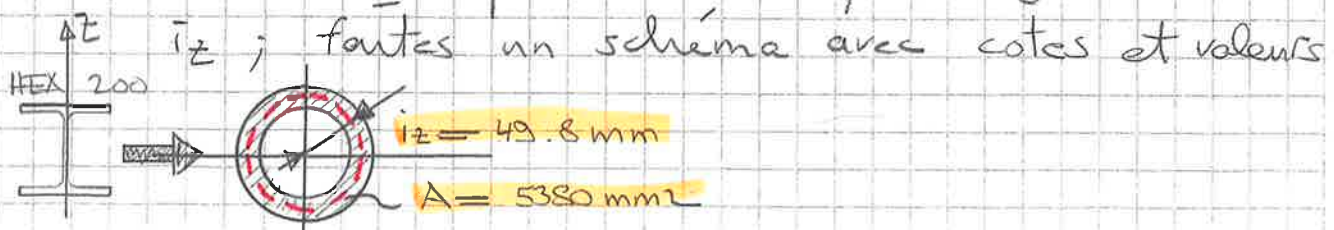 z
iz ; faites un schéma avec cotes et valeurs
HEX 200
iz = 49.8 mm
A = 5380 mm2